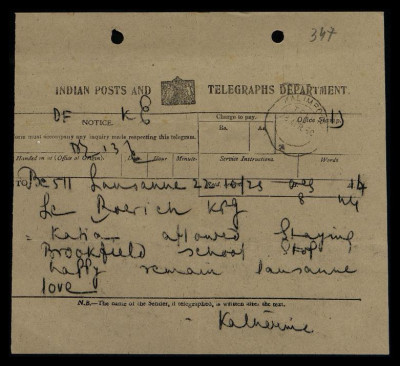 347
INDIAN POSTS AND TELEGRAPHS DEPARTMENT.
DF K
NOTICE.
Charge to pay.
Office Stamp.
KALIMPONG
must accompany any inquiry made respecting this telegram.
Rs. As.
Handed in at (Office of Origin). Date. Hour. Minute. Service Instructions. Words
TO
Lausanne 22 10/25 14
Roerich KPG
= Katia allowed staying
Brookfield school stop
happy remain lausanne
love
N.B.—The name of the Sender, if telegraphed, is written after the text.
- Katherine